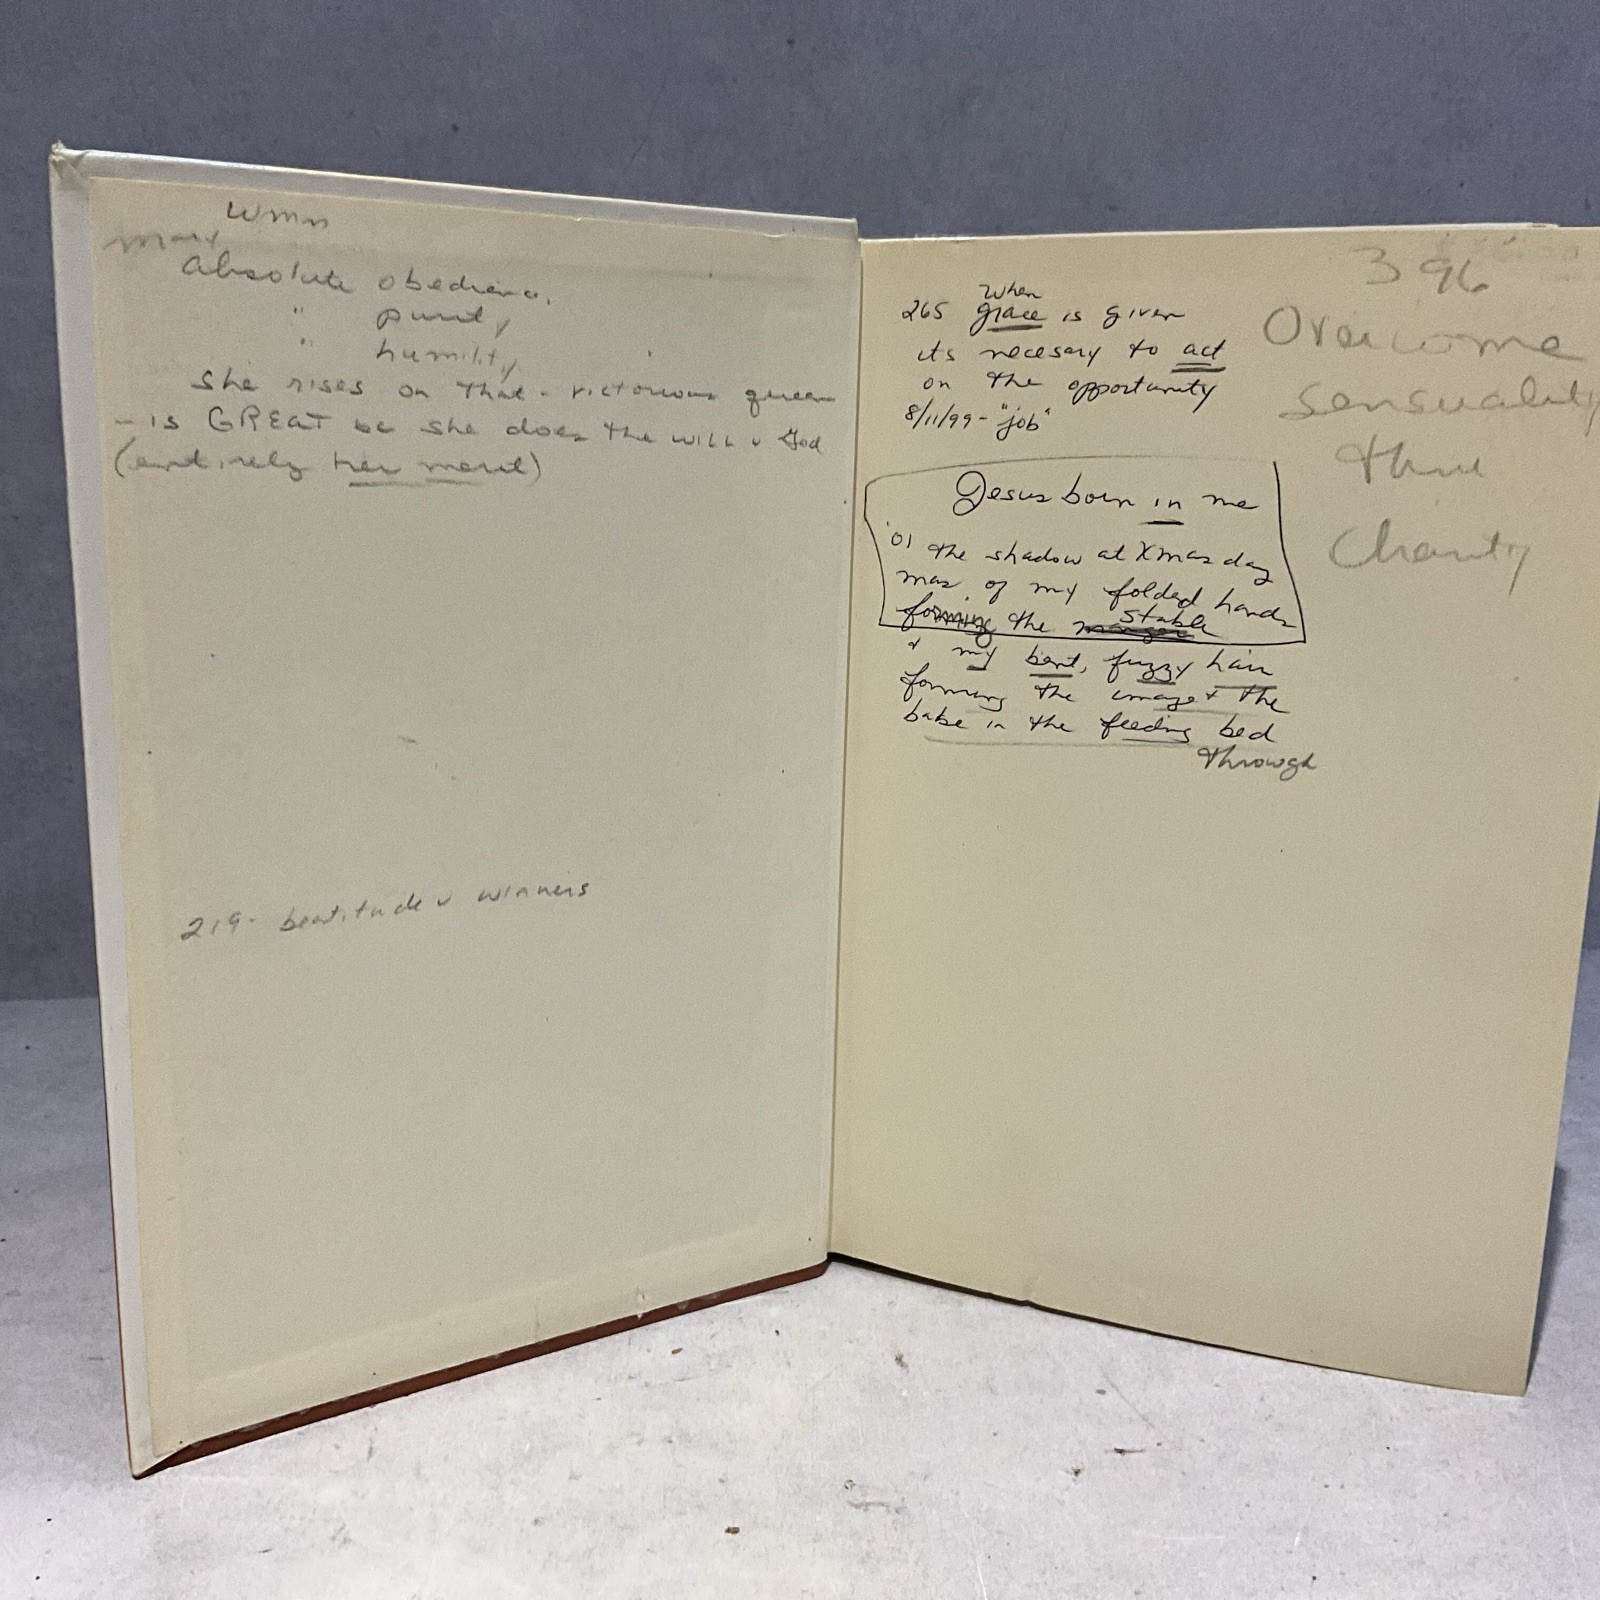 Wmn
Mary
Absolute obedience,
" purity
" humility
She rises on that - victorious queen
- is GREAT bc she does the will v God
(entirely her merit)
219- beatitude v winners
When
265 grace is given
its necesary to act
on the opportunity
8/11/99 - "job"
Jesus born in me
'01 the shadow at Xmas day
mas of my folded hands
forming the manger stable
+ my bent, fuzzy hair
forming the image + the
babe in the feeding bed
through
396
Overcome
sensuality
thru
Charity